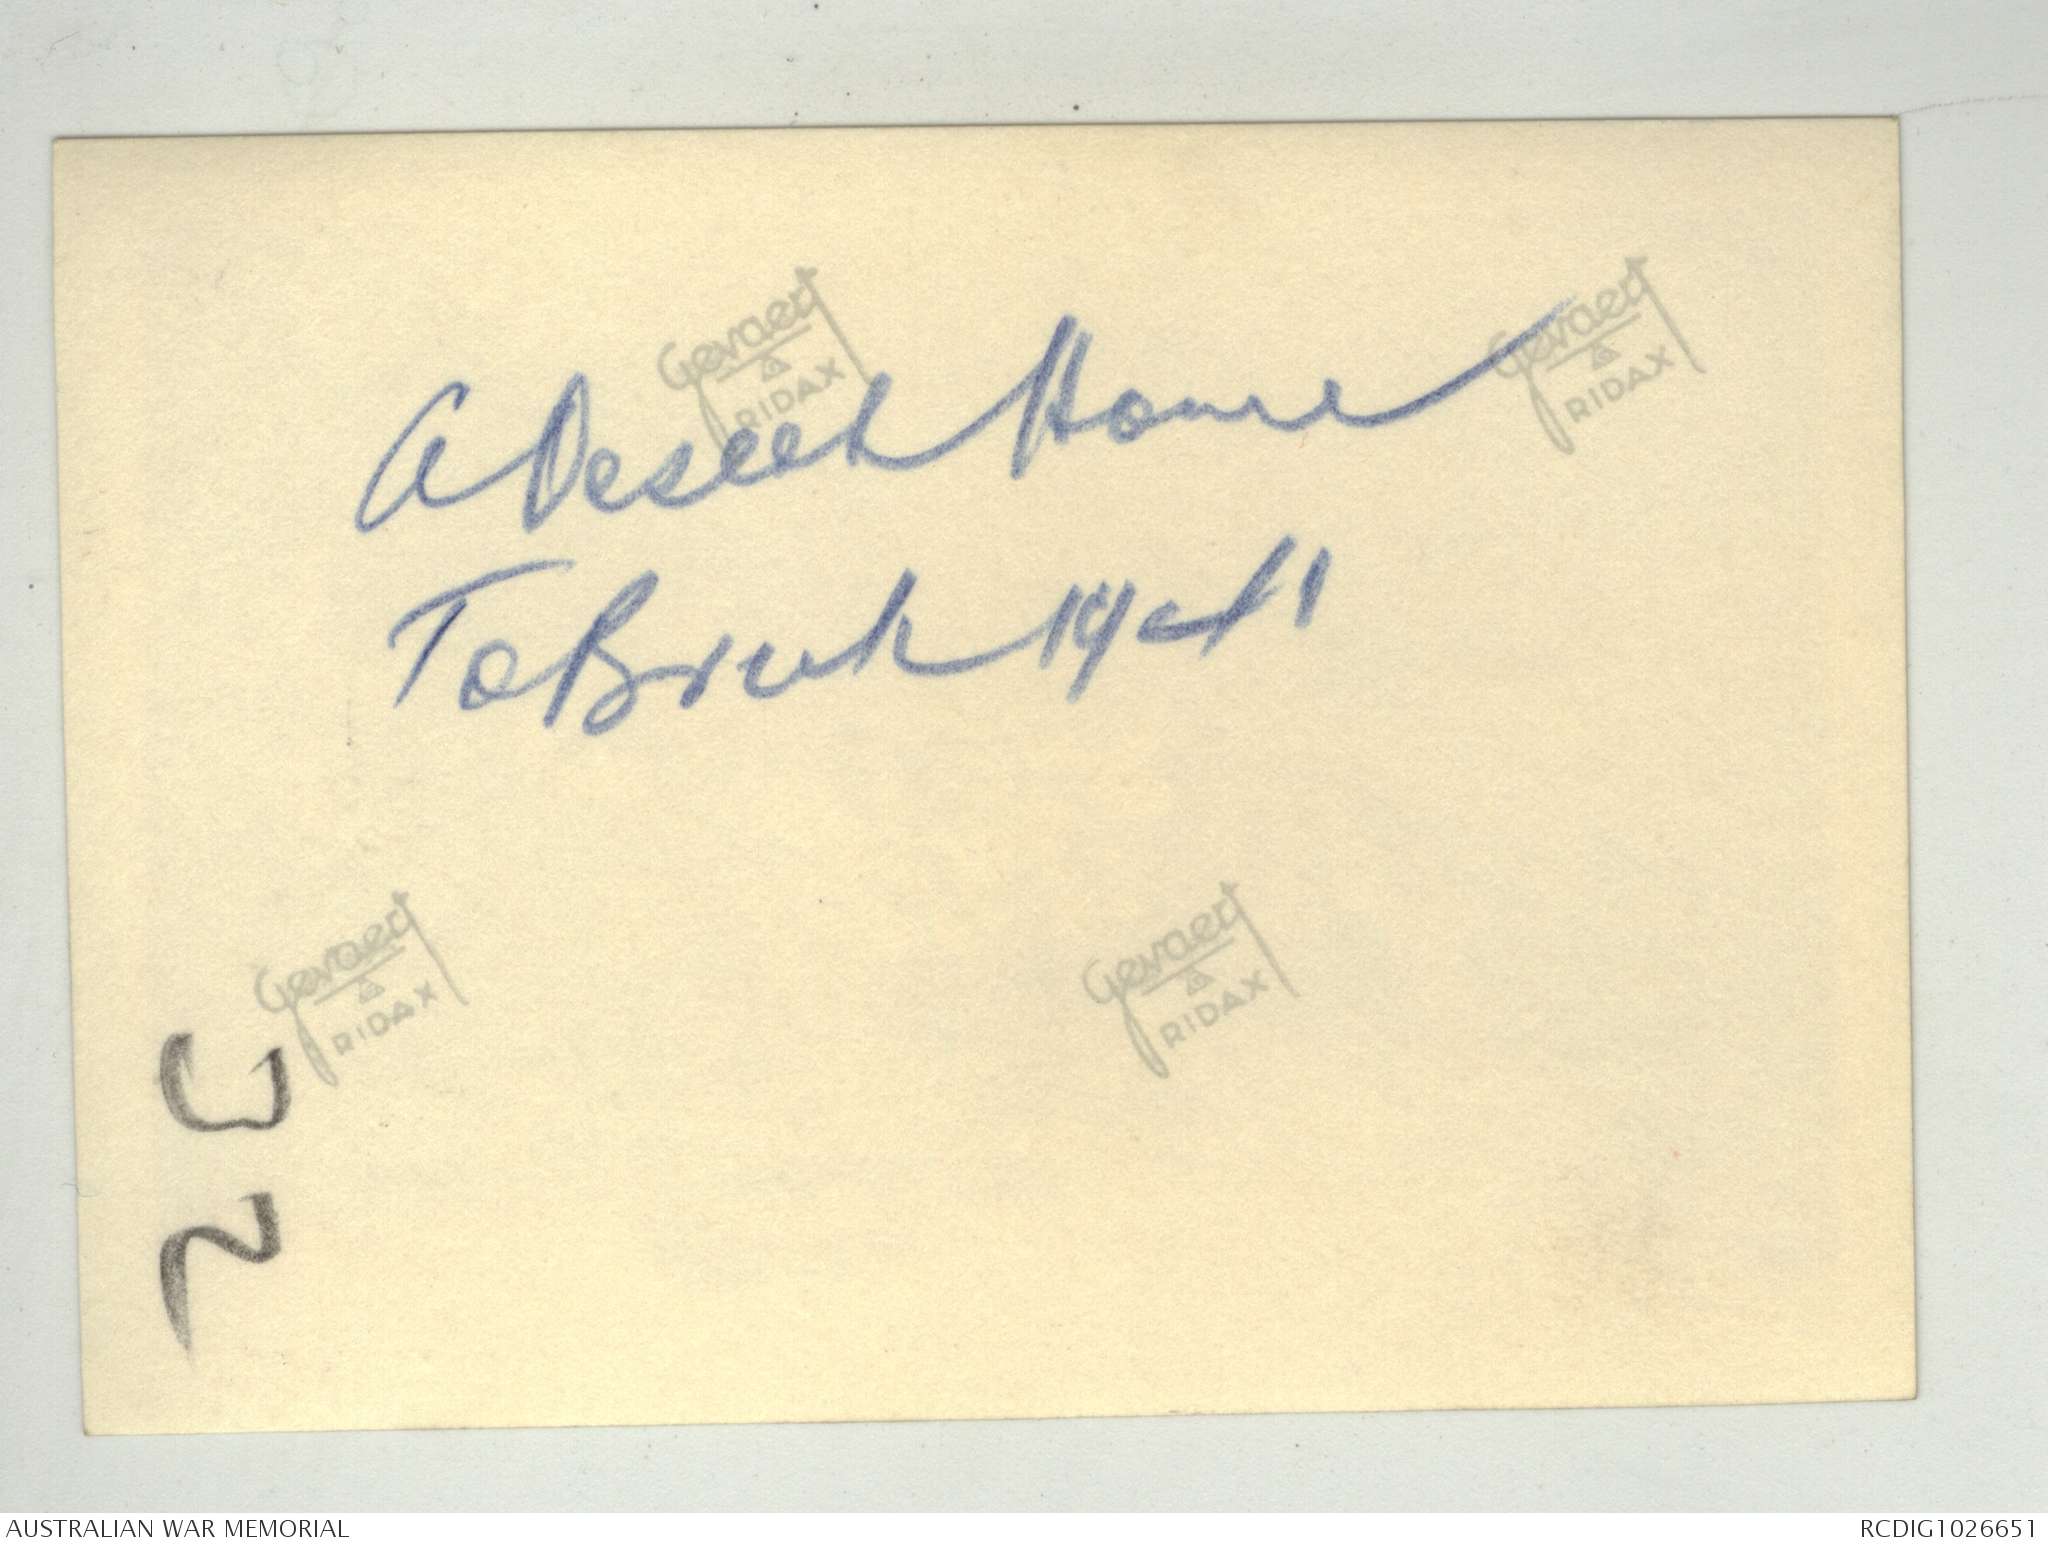 A Desert Home
ToBruk 1941
Gevaert
RIDAX
Gevaert
RIDAX
Gevaert
RIDAX
Gevaert
RIDAX
32
AUSTRALIAN WAR MEMORIAL
RCDIG1026651